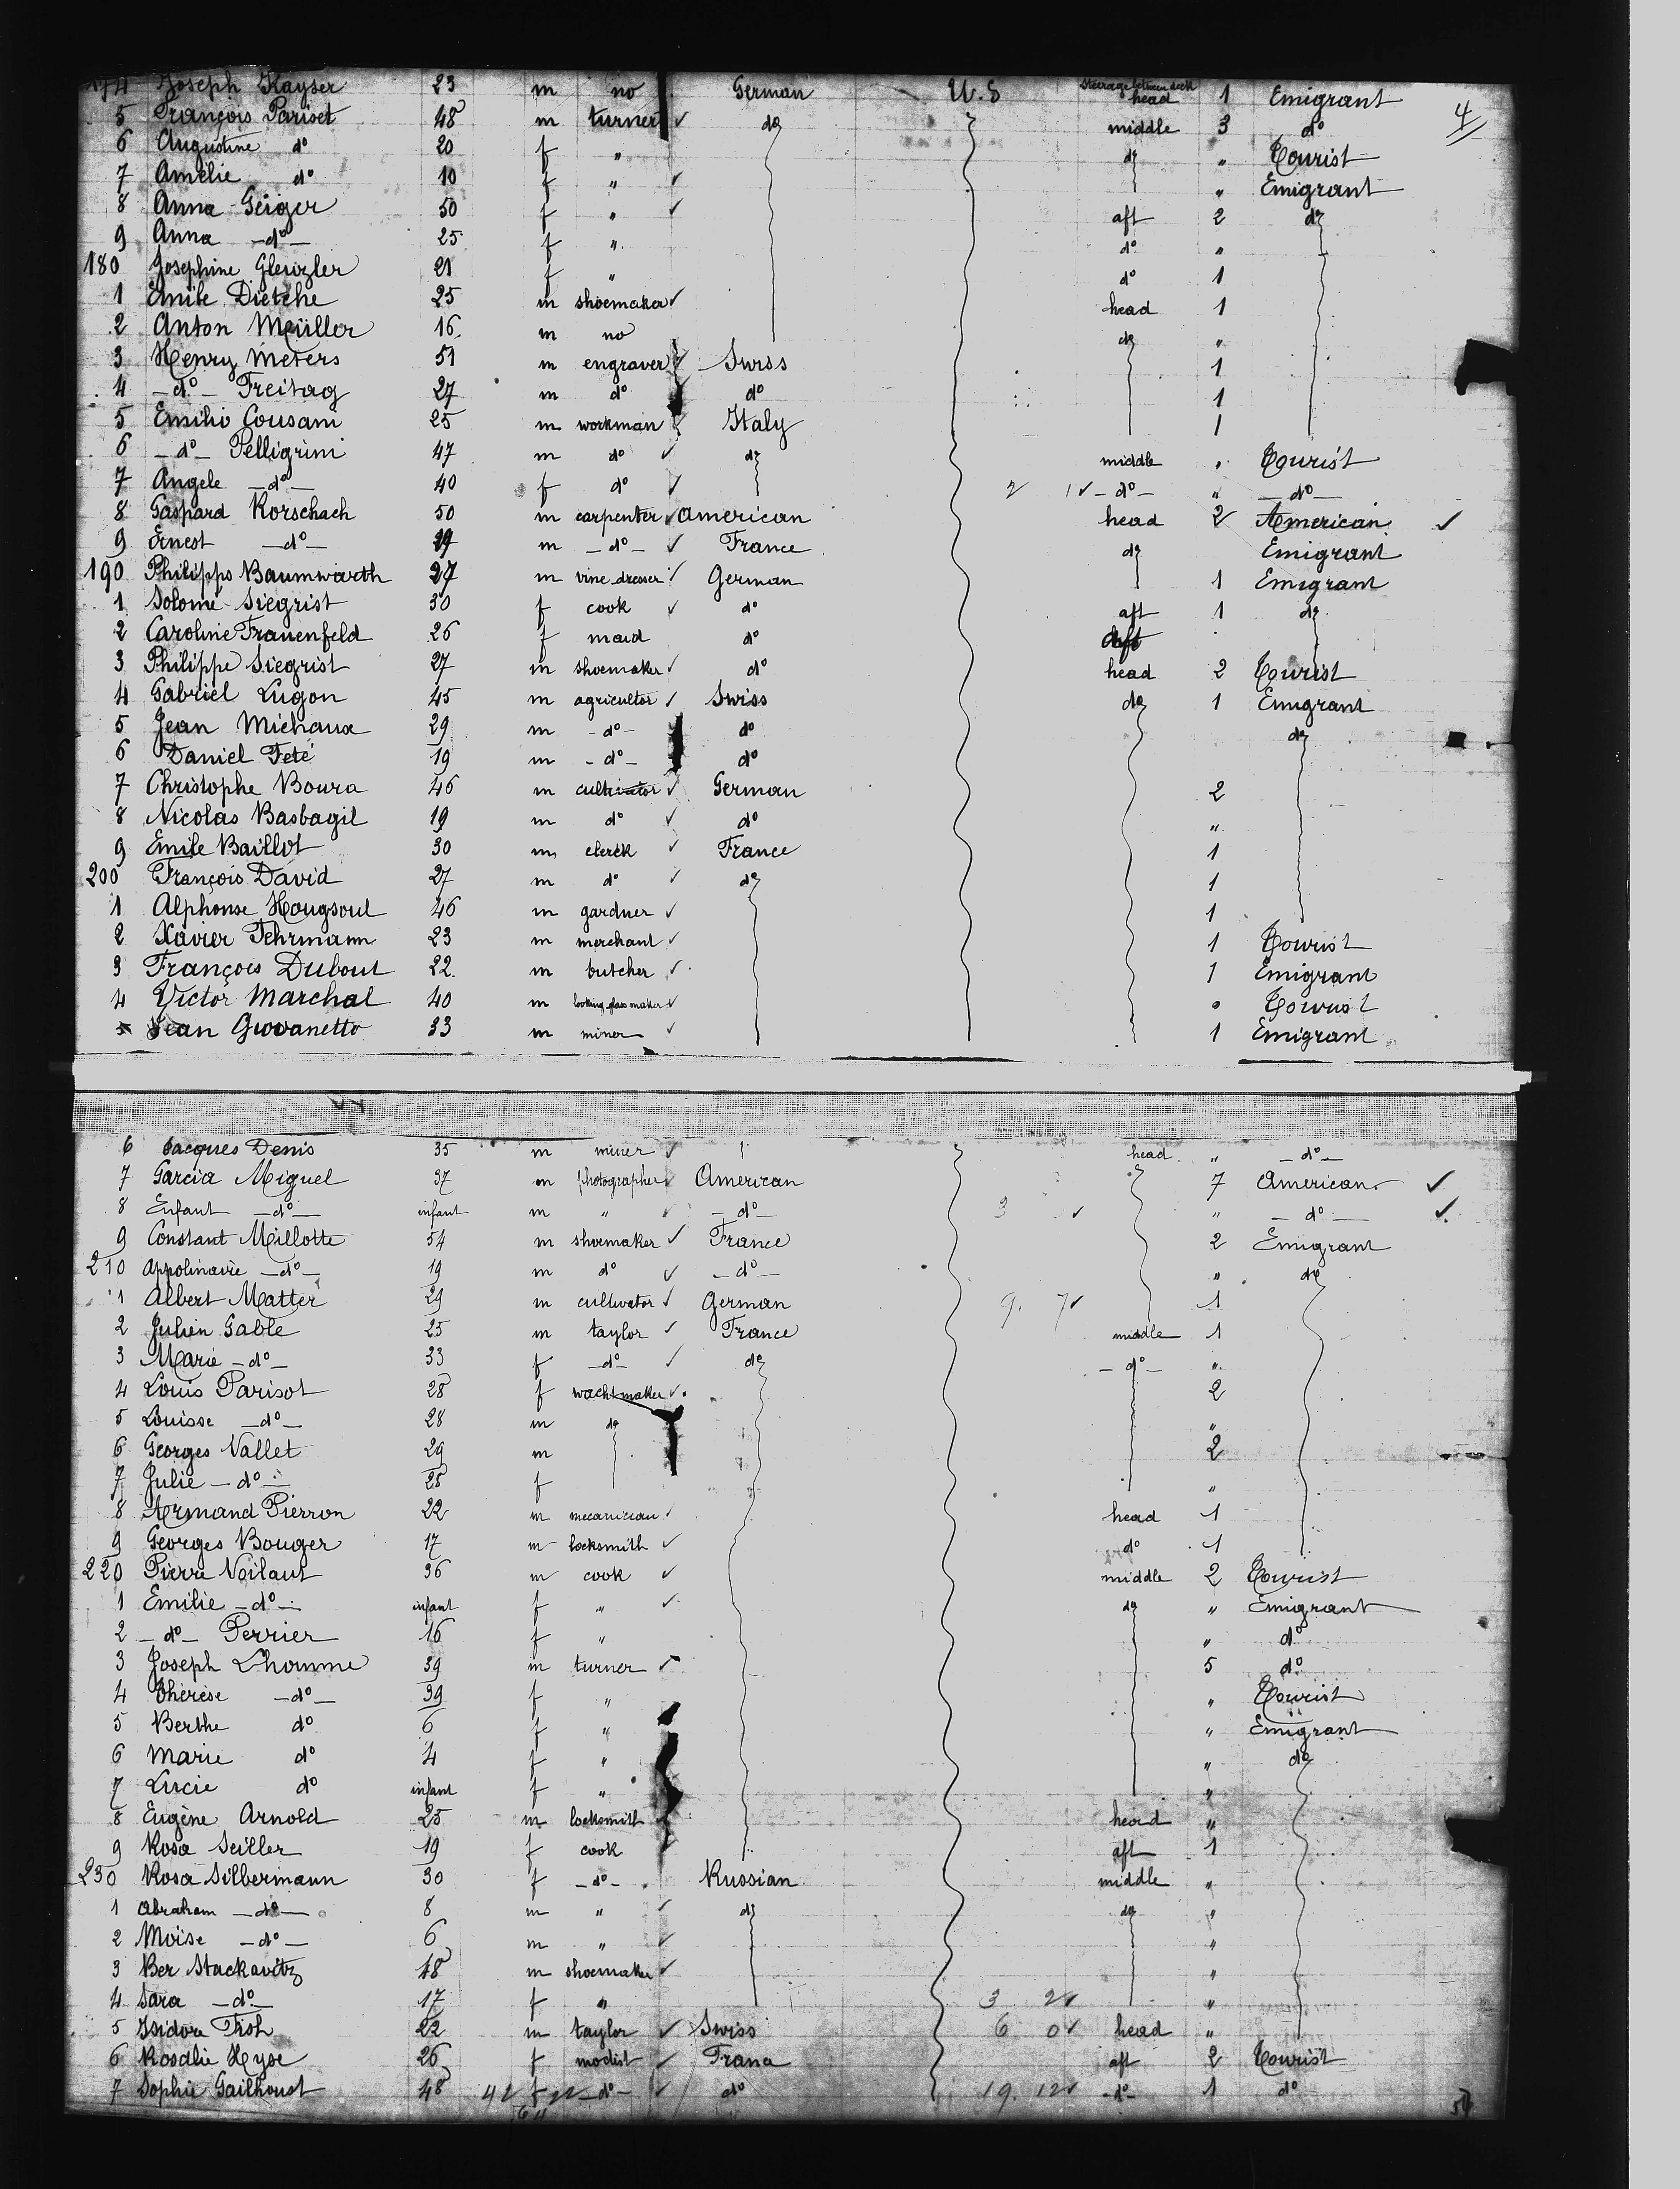 174 Joseph Kayser 23 m no German U.S Steerage between deck head 1 Emigrant 4
5 François Pariset 48 m turner ✓ do middle 3 do
6 Augustine do 20 f " do " Tourist
7 Amélie do 10 f " ✓ " Emigrant
8 Anna Geiger 50 f " ✓ aft 2 do
9 Anna -do- 25 f " do "
180 Josephine Glenzler 21 f " do 1
1 Emile Dietche 25 m shoemaker ✓ head 1
2 Anton Meüller 16 m no do "
3 Henry Meters 51 m engraver ✓ Swiss 1
4 -do- Freitag 27 m do do 1
5 Emilio Cousani 25 m workman Italy 1
6 -do- Pelligrini 47 m do ✓ do middle " Tourist
7 Angele -do- 40 f do ✓ 2 1 ✓ -do- " -do-
8 Gaspard Rorschach 50 m carpenter ✓ American head 2 American ✓
9 Ernest -do- 29 m -do- ✓ France do Emigrant
190 Philipps Baumwarth 27 m vine dresser German 1 Emigrant
1 Solomé Siegrist 30 f cook ✓ do aft 1 do
2 Caroline Frauenfeld 26 f maid do aft
3 Philippe Siegrist 27 m shoemaker ✓ do head 2 Tourist
4 Gabriel Lugon 45 m agricultor ✓ Swiss do 1 Emigrant
5 Jean Michaux 29 m -do- do do
6 Daniel Feté 19 m -do- do
7 Christophe Boura 46 m cultivator ✓ German 2
8 Nicolas Basbagil 19 m do ✓ do "
9 Emile Baillot 30 m clerck ✓ France 1
200 François David 27 m do ✓ do 1
1 Alphonse Hougsoul 46 m gardner ✓ 1
2 Xavier Fehrmann 23 m merchant ✓ 1 Tourist
3 François Dubout 22 m butcher ✓ 1 Emigrant
4 Victor Marchal 40 m looking glass maker ✓ " Tourist
5 Jean Giovanetto 33 m miner ✓ 1 Emigrant
6 Jacques Denis 35 m miner ✓ head " -do-
7 Garcia Miguel 37 m photographer ✓ American 7 American ✓
8 Enfant -do- infant m " ✓ -do- 3 ✓ " -do- ✓
9 Constant Millotte 54 m shoemaker ✓ France 2 Emigrant
210 Appolinaire -do- 19 m do ✓ -do- " do
1 Albert Matter 29 m cultivator ✓ German 9. 7 ✓ 1
2 Julien Gable 25 m taylor ✓ France middle 1
3 Marie -do- 33 f -do- ✓ do -do- "
4 Louis Parisot 28 f wachtmaker ✓ 2
5 Louisse -do- 28 m do "
6 Georges Vallet 29 m 2
7 Julie -do- 28 f "
8 Armand Pierron 22 m mecanician ✓ head 1
9 Georges Bouger 17 m locksmith ✓ do 1
220 Pierre Voilaut 36 m cook ✓ middle 2 Tourist
1 Emilie -do- infant f " ✓ do " Emigrant
2 -do- Perrier 16 f " " do
3 Joseph Lhomme 39 m turner ✓ 5 do
4 Thérèse -do- 39 f " " Tourist
5 Berthe do 6 f " " Emigrant
6 Marie do 4 f " " do
7 Lucie do infant f " "
8 Eugène Arnold 25 m locksmith head "
9 Rosa Seiller 19 f cook aft 1
230 Rosa Silbermann 30 f -do- Russian middle "
1 Abraham -do- 8 m " ✓ do do "
2 Moïse -do- 6 m " ✓ "
3 Ber Stackavitz 48 m shoemaker ✓ "
4 Sara -do- 17 f " 3 2 ✓ "
5 Isidore Froh 22 m taylor ✓ Swiss 6 0 ✓ head "
6 Rosalie Hyse 26 f modist ✓ Franc aft 2 Tourist
7 Sophie Gailhoust 48 42 f -do- ✓ do 19. 12 ✓ -do- 1 do